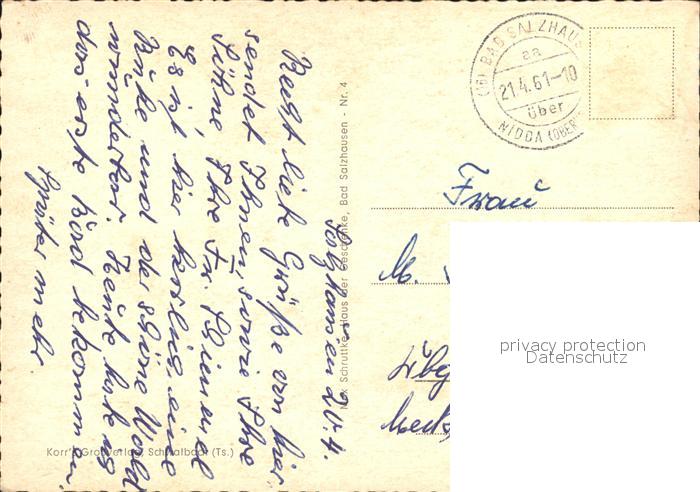 Salzhausen 21.4.
Recht liebe Grüße von hier
sendet Ihnen, sowie Ihre
Söhne Ihre Fr.
Es ist hier herrlich eine
Ruhe und der schöne Wald
wunderbar. Heute habe ich
das erste Bad bekommen,
später mehr.
Max Schruttke, Haus der Geschenke, Bad Salzhausen - Nr. 4
Korr's Großverlag, Schwalbach (Ts.)
(16) BAD SALZHAUS
aa
21.4.61-10
über
NIDDA (OBER
Frau
M.
privacy protection
Datenschutz